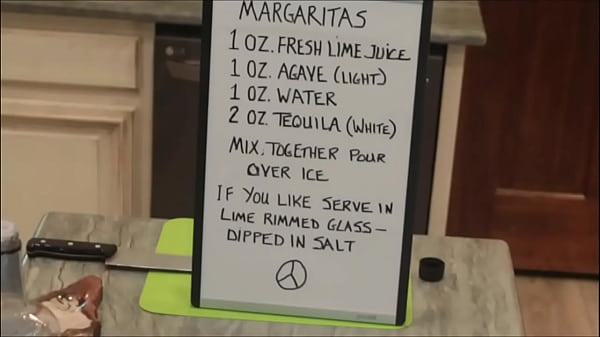 MARGARITAS
1 OZ. FRESH LIME JUICE
1 OZ. AGAVE (LIGHT)
1 OZ. WATER
2 OZ. TEQUILA (WHITE)
MIX. TOGETHER POUR
OVER ICE
IF YOU LIKE SERVE IN
LIME RIMMED GLASS—
DIPPED IN SALT